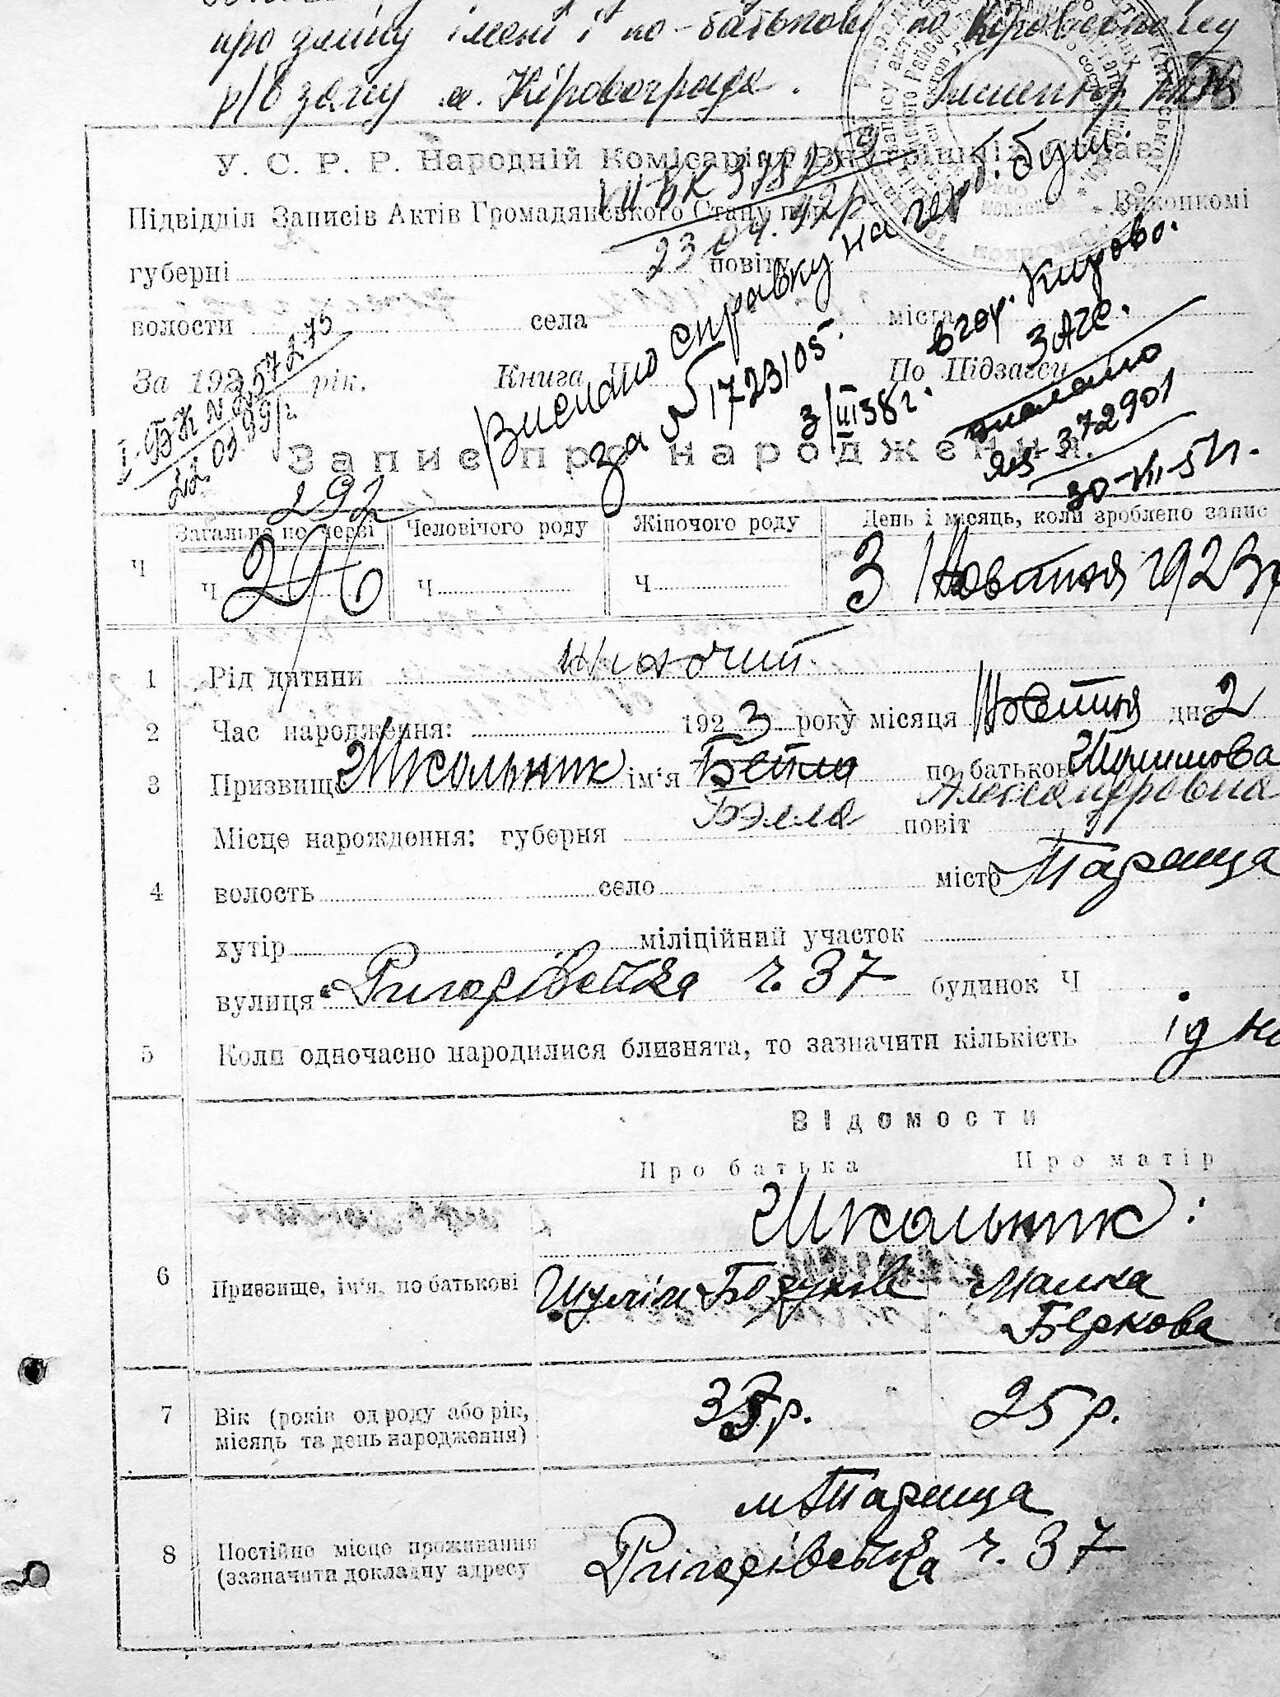 про зміну імені і по-батькові по Кіровському
р/в загсу м. Кіровограда.
У. С. Р. Р. Народній Комісаріят Внутрішніх Справ
Підвідділ Записів Актів Громадянського Стану при Виконкомі
VII БК 378
23.04.42р.
губерні повіту
волости села міста
За 192 рік. Книга Ч По Підзагси
I-БК № 257275
22 01 99 г
Вислано справку на герб. бум.
за № 1723105.
3/III 38 г.
в гор. Кирово.
ЗАГС.
372901
30-VII-51 г.
Запис про народження.
292
Загальна по черзі Человічого роду Жіночого роду День і місяць, коли зроблено запис
Ч Ч 296 Ч Ч 3 Жовтня 1923р
1 Рід дитини жіночий
2 Час народження: 1923 року місяця Жовтня дня 2
3 Призвище Школьник ім'я Бейла по батькові Шулимова
Бэлла Александровна
Місце народження: губерня повіт
4 волость село місто Тараща
хутір міліційний участок
вулиця Ригорівська ч. 37 будинок Ч
5 Коли одночасно народилися близнята, то зазначити кількість одно
Відомости
Про батька Про матір
Школьник:
6 Призвище, ім'я, по батькові Шулім Малка
Беркова
7 Вік (років од роду або рік, місяць та день народження) р. 25 р.
м. Тараща
8 Постійне місце проживання (зазначити докладну адресу Ригорівська ч. 37